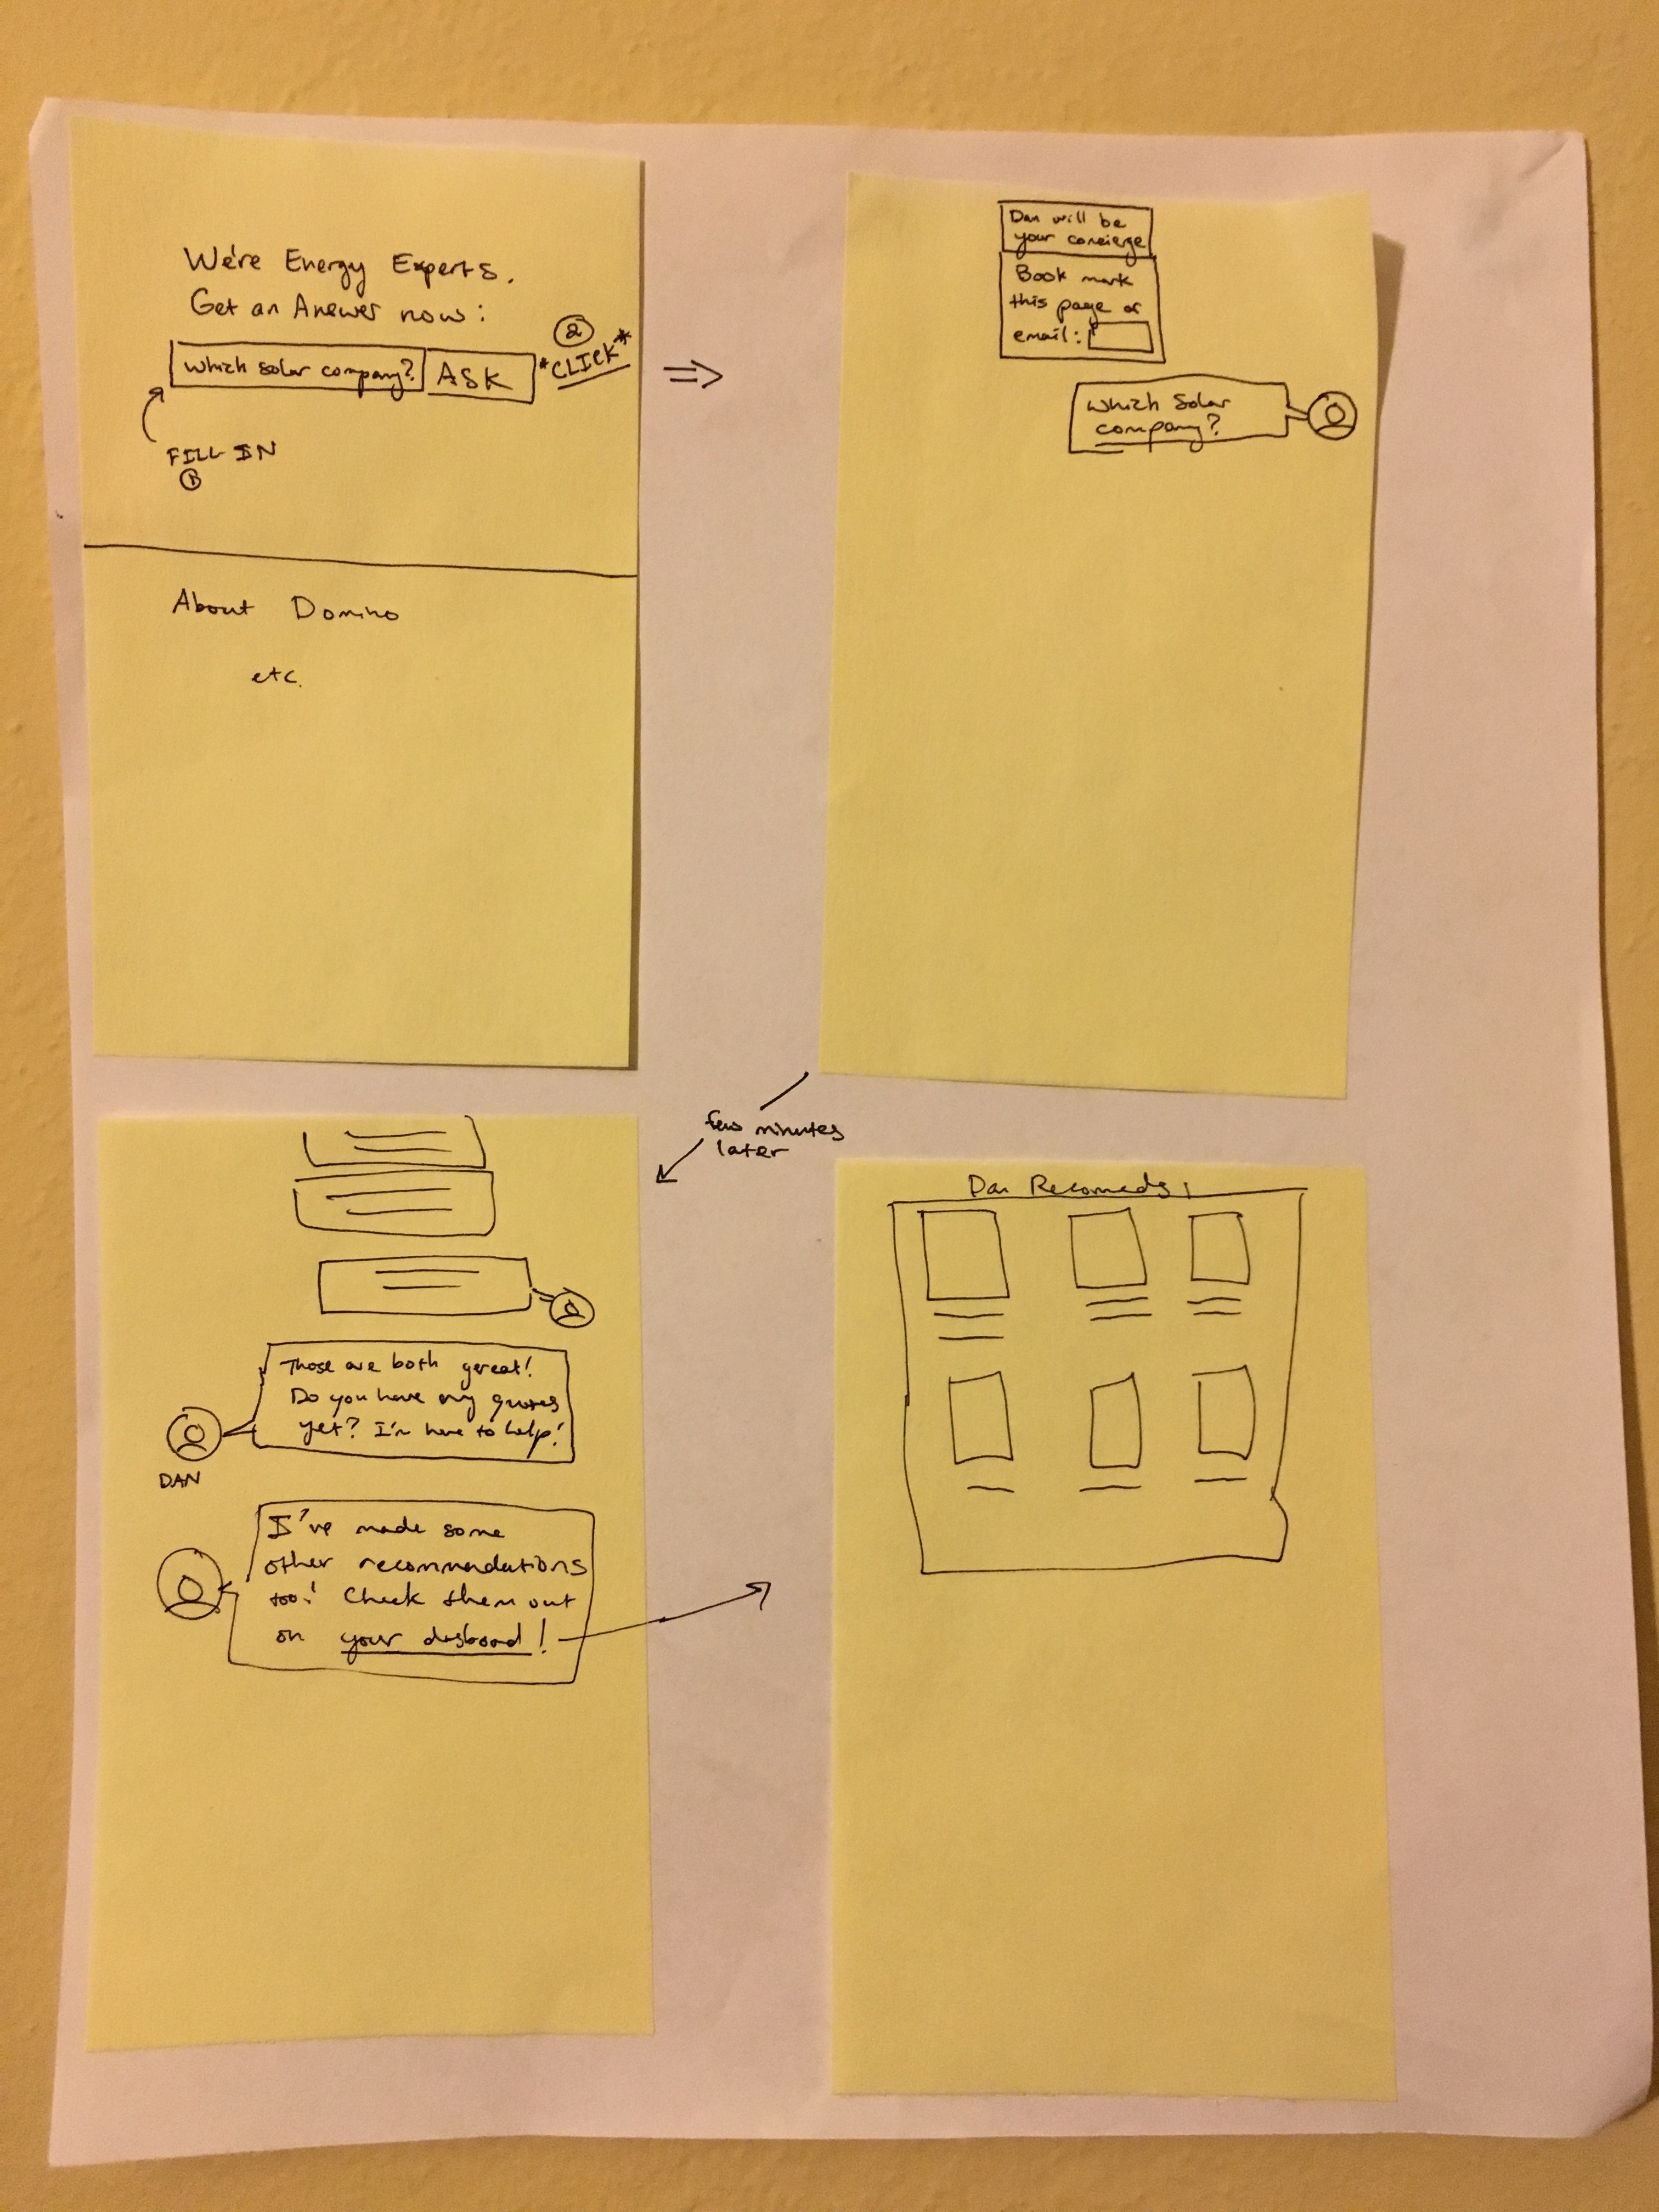 We're Energy Experts.
Get an Answer now:
Which Solar company?
ASK
②
*CLICK*
FILL IN
①
About Domino
etc.
⇒
Dan will be
your concierge
Book mark
this page or
email:
Which Solar
company?
few minutes
later
Those are both gereat!
Do you have any quotes
yet? I'm here to help!
DAN
I've made some
other recommendations
too! Check them out
on your dasboad!
Dan Recomeds: